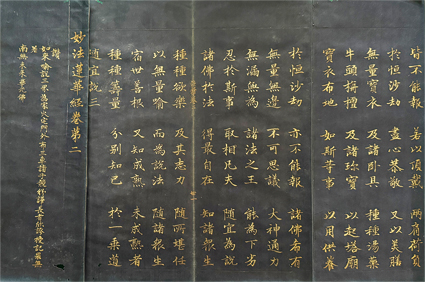 皆不能報 若以頂戴 兩肩荷負
於恒沙劫 盡心恭敬 又以美膳
無量寶衣 及諸臥具 種種湯藥
牛頭栴檀 及諸珎寶 以起塔廟
寶衣布地 如斯等事 以用供養
於恒沙劫 亦不能報 諸佛希有
無量無邊 不可思議 大神通力
無漏無為 諸法之王 能為下劣
忍於斯事 取相凡夫 隨宜為說
諸佛於法 得最自在 知諸眾生
種種欲樂 及其志力 隨所堪任
以無量喻 而為說法 隨諸眾生
宿世善根 又知成熟 未成熟者
種種籌量 分別知已 於一乘道
隨宜說三
妙法蓮華經卷第二
讚